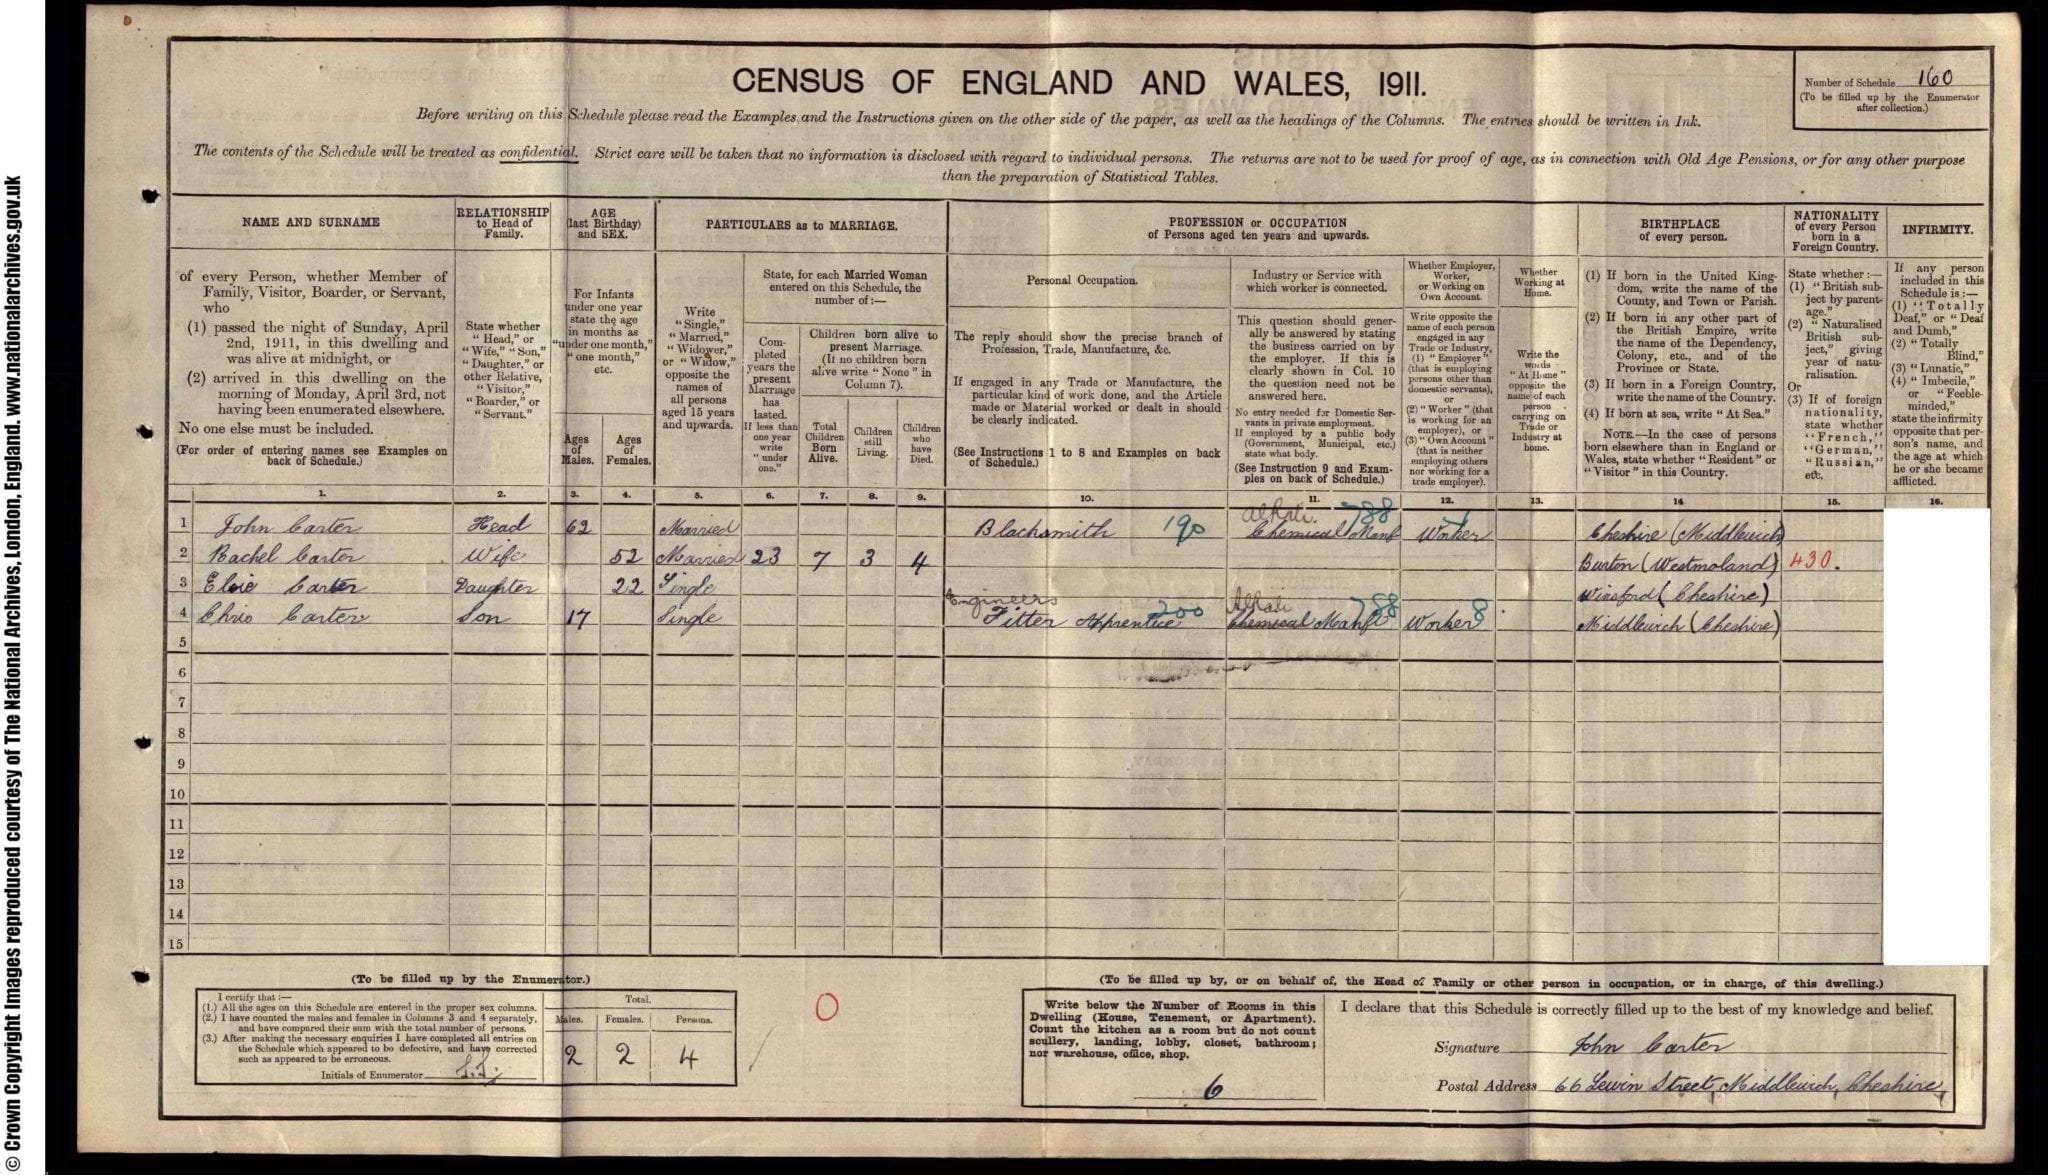 © Crown Copyright Images reproduced courtesy of The National Archives, London, England. www.nationalarchives.gov.uk
CENSUS OF ENGLAND AND WALES, 1911.
Number of Schedule 160
(To be filled up by the Enumerator after collection.)
Before writing on this Schedule please read the Examples and the Instructions given on the other side of the paper, as well as the headings of the Columns. The entries should be written in Ink.
The contents of the Schedule will be treated as confidential. Strict care will be taken that no information is disclosed with regard to individual persons. The returns are not to be used for proof of age, as in connection with Old Age Pensions, or for any other purpose
than the preparation of Statistical Tables.
NAME AND SURNAME
of every Person, whether Member of
Family, Visitor, Boarder, or Servant,
who
(1) passed the night of Sunday, April
2nd, 1911, in this dwelling and
was alive at midnight, or
(2) arrived in this dwelling on the
morning of Monday, April 3rd, not
having been enumerated elsewhere.
No one else must be included.
(For order of entering names see Examples on
back of Schedule.)
RELATIONSHIP
to Head of
Family.
State whether
"Head," or
"Wife," "Son,"
"Daughter," or
other Relative,
"Visitor,"
"Boarder," or
"Servant."
AGE
(last Birthday)
and SEX.
For Infants
under one year
state the age
in months as
"under one month,"
"one month,"
etc.
Ages
of
Males.
Ages
of
Females.
PARTICULARS as to MARRIAGE.
Write
"Single,"
"Married,"
"Widower,"
or "Widow,"
opposite the
names of
all persons
aged 15 years
and upwards.
State, for each Married Woman
entered on this Schedule, the
number of:—
Completed
years the
present
Marriage
has
lasted.
If less than
one year
write
"under
one."
Children born alive to
present Marriage.
(If no children born
alive write "None" in
Column 7).
Total
Children
Born
Alive.
Children
still
Living.
Children
who
have
Died.
PROFESSION or OCCUPATION
of Persons aged ten years and upwards.
Personal Occupation.
The reply should show the precise branch of
Profession, Trade, Manufacture, &c.
If engaged in any Trade or Manufacture, the
particular kind of work done, and the Article
made or Material worked or dealt in should
be clearly indicated.
(See Instructions 1 to 8 and Examples on back
of Schedule.)
Industry or Service with
which worker is connected.
This question should gener-
ally be answered by stating
the business carried on by
the employer. If this is
clearly shown in Col. 10
the question need not be
answered here.
No entry needed for Domestic Ser-
vants in private employment.
If employed by a public body
(Government, Municipal, etc.)
state what body.
(See Instruction 9 and Exam-
ples on back of Schedule.)
Whether Employer,
Worker,
or Working on
Own Account.
Write opposite the
name of each person
engaged in any
Trade or Industry,
(1) "Employer"
(that is employing
persons other than
domestic servants),
or
(2) "Worker" (that
is working for an
employer), or
(3) "Own Account"
(that is neither
employing others
nor working for a
trade employer).
Whether
Working at
Home.
Write the
words
"At Home"
opposite the
name of each
person
carrying on
Trade or
Industry at
home.
BIRTHPLACE
of every person.
(1) If born in the United King-
dom, write the name of the
County, and Town or Parish.
(2) If born in any other part of
the British Empire, write
the name of the Dependency,
Colony, etc., and of the
Province or State.
(3) If born in a Foreign Country,
write the name of the Country.
(4) If born at sea, write "At Sea."
NOTE.—In the case of persons
born elsewhere than in England or
Wales, state whether "Resident" or
"Visitor" in this Country.
NATIONALITY
of every Person
born in a
Foreign Country.
State whether:—
(1) "British sub-
ject by parent-
age."
(2) "Naturalised
British sub-
ject," giving
year of natu-
ralisation.
Or
(3) If of foreign
nationality,
state whether
"French,"
"German,"
"Russian,"
etc.
INFIRMITY.
If any person
included in this
Schedule is:—
(1) "Totally
Deaf," or "Deaf
and Dumb,"
(2) "Totally
Blind,"
(3) "Lunatic,"
(4) "Imbecile,"
or "Feeble-
minded,"
state the infirmity
opposite that per-
son's name, and
the age at which
he or she became
afflicted.
1. 2. 3. 4. 5. 6. 7. 8. 9. 10. 11. 12. 13. 14. 15. 16.
1 John Carter Head 62 Married Blacksmith 190 Alkali 788 Chemical Manf Worker Cheshire (Middlewich)
2 Rachel Carter Wife 52 Married 23 7 3 4 Burton (Westmoland) 430.
3 Elsie Carter Daughter 22 Single Winsford (Cheshire)
4 Chris Carter Son 17 Single Engineers Fitter Apprentice 200 Alkali 788 Chemical Manf Worker 8 Middlewich (Cheshire)
5
6
7
8
9
10
11
12
13
14
15
(To be filled up by the Enumerator.)
I certify that:—
(1.) All the ages on this Schedule are entered in the proper sex columns.
(2.) I have counted the males and females in Columns 3 and 4 separately,
and have compared their sum with the total number of persons.
(3.) After making the necessary enquiries I have completed all entries on
the Schedule which appeared to be defective, and have corrected
such as appeared to be erroneous.
Initials of Enumerator
Total.
Males. Females. Persons.
2 2 4
0
(To be filled up by, or on behalf of, the Head of Family or other person in occupation, or in charge, of this dwelling.)
Write below the Number of Rooms in this
Dwelling (House, Tenement, or Apartment).
Count the kitchen as a room but do not count
scullery, landing, lobby, closet, bathroom;
nor warehouse, office, shop.
6
I declare that this Schedule is correctly filled up to the best of my knowledge and belief.
Signature John Carter
Postal Address 66 Lewin Street, Middlewich, Cheshire,